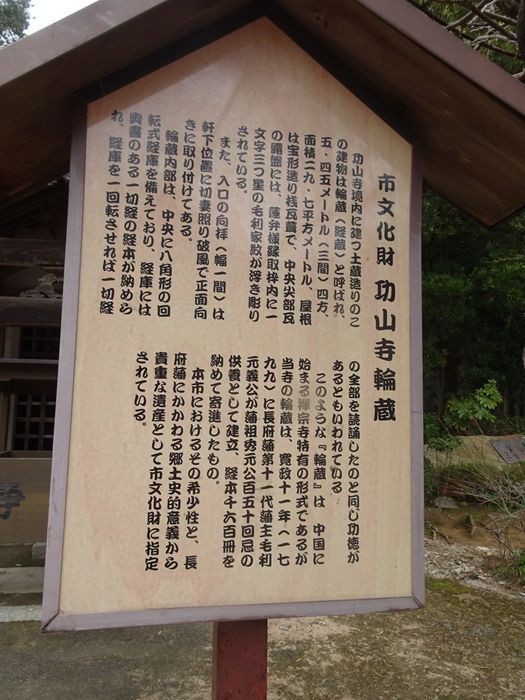 市文化財 功山寺輪蔵
功山寺境内に建つ土蔵造りのこ
の建物は輪蔵（経蔵）と呼ばれ、
五・四五メートル（三間）四方、
面積二九・七平方メートル、屋根
は宝形造り桟瓦葺で、中央尖部瓦
の露盤には、蓮弁様縁取枠内に一
文字三つ星の毛利家紋が浮き彫り
されている。
また、入口の向拝（幅一間）は
軒下位置に切妻照り破風で正面向
きに取り付けてある。
輪蔵内部は、中央に八角形の回
転式経庫を備えており、経庫には
奥書のある一切経の経本が納めら
れ、経庫を一回転させれば一切経
の全部を読誦したのと同じ功徳が
あるともいわれている
このような『輪蔵』は 中国に
始まる禅宗寺特有の形式であるが
当寺の輪蔵は、寛政十一年（一七
九九）に長府藩第十一代藩主毛利
元義公が藩祖秀元公百五十回忌の
供養として建立、経本千六百冊を
納めて寄進したもの。
本市におけるその希少性と、長
府藩にかかわる郷土史的意義から
貴重な遺産として市文化財に指定
されている。